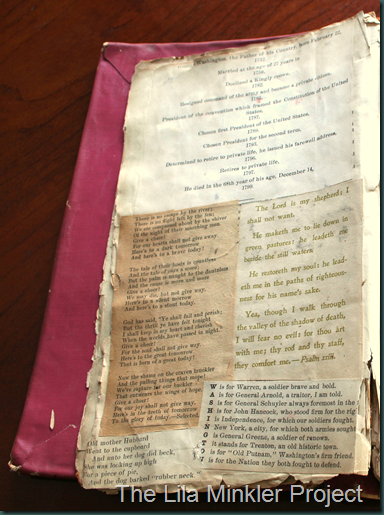 Washington, the Father of his Country, born February 22,
1732.
Married at the age of 27 years in
1759.
Declined a Kingly crown.
1782.
Resigned command of the army and became a private citizen.
President of the convention which framed the Constitution of the United
States.
1787.
Chosen first President of the United States.
1789.
Chosen President for the second term.
1793.
Determined to retire to private life, he issued his farewell address.
1796.
Retires to private life,
1797.
He died in the 68th year of his age, December 14,
1799.
Give a cheer!
For our hearts shall not give way.
Here's to a dark tomorrow
And here's to a brave today!
The tale of their hosts is countless
And the tale of ours a score;
But the palm is naught to the dauntless
And the cause is more and more
Give a cheer!
We may die, but not give way.
Here's to a silent morrow
And here's to a stout today.
God has said, "Ye shall fail and perish;
But the thrill ye have felt tonight
I shall keep in my heart and cherish
When the worlds have passed in night."
Give a cheer!
For the soul shall not give way.
Here's to the great tomorrow
That is born of a great today!
Now the shame on the craven truckler
And the puling things that mope!
Give a cheer!
For our joy shall not give way.
Here's in the teeth of tomorrow
To the glory of today.
The Lord is my shepherd: I
shall not want.
He maketh me to lie down in
green pastures: he leadeth me
beside the still waters.
He restoreth my soul: he lead-
eth me in the paths of righteous-
ness for his name's sake.
Yea, though I walk through
the valley of the shadow of death,
I will fear no evil: for thou art
with me; thy rod and thy staff,
they comfort me.—Psalm
W is for Warren, a soldier brave and bold.
A is for General Arnold, a traitor, I am told.
S is for General Schuyler always foremost in the
H is for John Hancock, who stood firm for the rig
I is Independence, for which our soldiers fought.
N New York, a city, for which both armies sought
G is General Greene, a soldier of renown.
T It stands for Trenton, an old historic town.
O is for "Old Putnam," Washington's firm friend.
N is for the Nation they both fought to defend.
Old mother Hubbard
Went to the cupboard
And onto her dog did beck,
She was locking up high
For a piece of pie,
And the dog barked "rubber neck."
The Lila Minkler Project